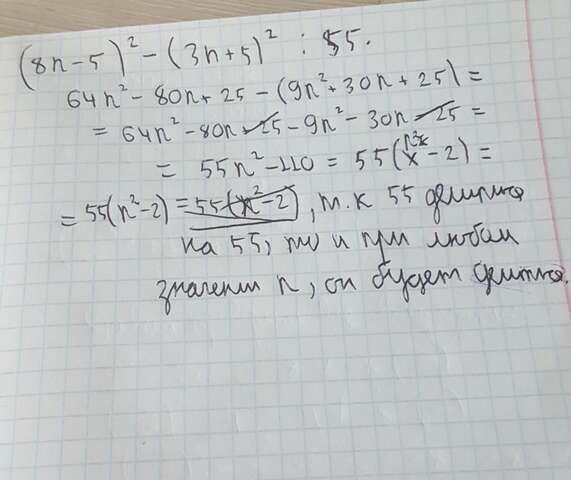 (8n-5)² - (3n+5)² : 55.
64n² - 80n + 25 - (9n² + 30n + 25) =
= 64n² - 80n + 25 - 9n² - 30n - 25 =
= 55n² - 110 = 55(x - 2) =
= 55(n² - 2) = 55(x² - 2), т.к 55 делится
на 55, то и при любом
значении n, он будет делится.